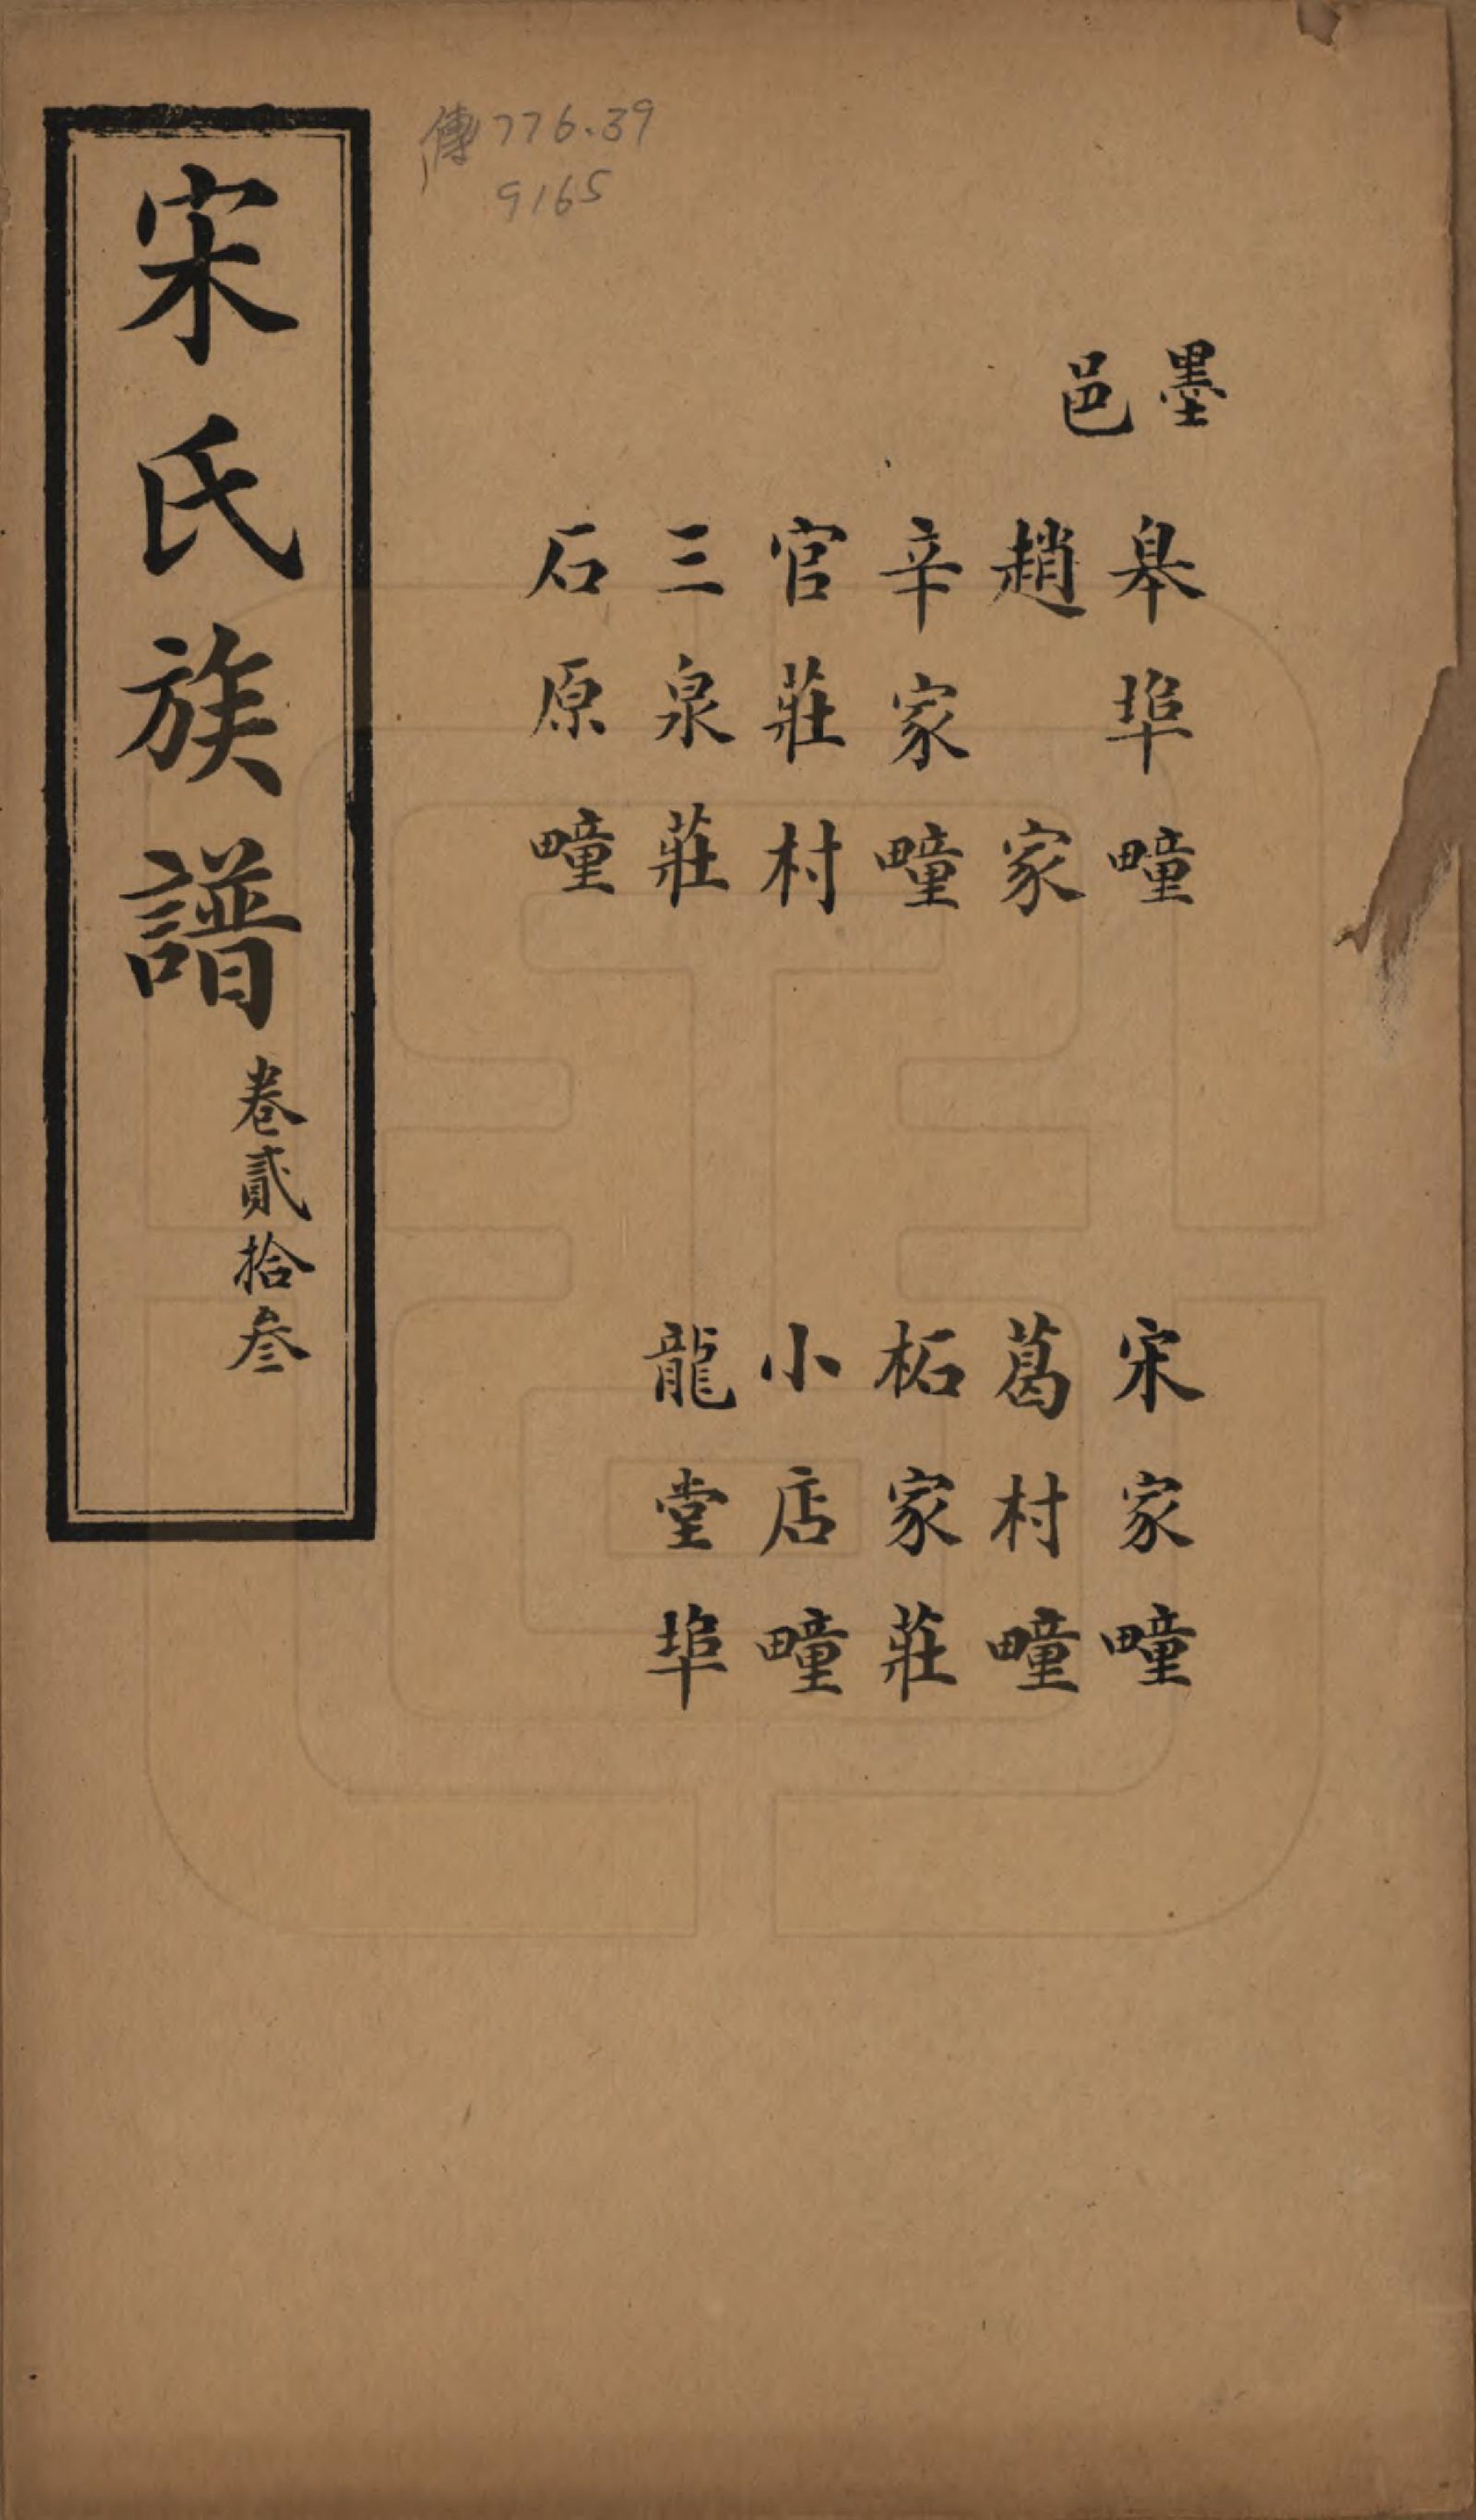 墨邑
皋埠疃
趙家
辛家疃
官莊村
三泉莊
石原疃
宋家疃
葛村疃
柘家莊
小店疃
龍堂埠
傳776.39
9165
宋氏族譜 卷貳拾叄